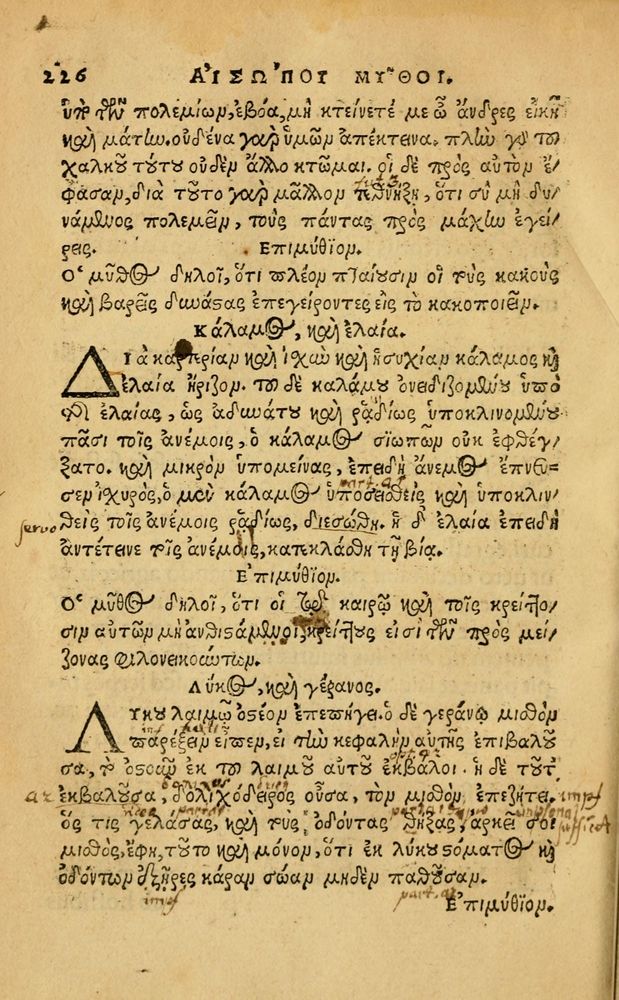 226 ΑΙΣΩΠΟΥ ΜΥΘΟΙ.
ὑπὸ τῶν πολεμίων, ἐβόα, μὴ κτείνετέ με ὦ ἄνδρες εἰκῆ
καὶ μάτην. οὐδένα γὰρ ὑμῶν ἀπέκτεινα. πλὴν γὰρ τοῦ
χαλκοῦ τούτου οὐδὲν ἄλλο κτῶμαι. οἱ δὲ πρὸς αὐτὸν ἔ/
φασαν, διὰ τοῦτο γὰρ μᾶλλον τεθνήξῃ, ὅτι σὺ μὴ δυ/
νάμενος πολεμεῖν, τοὺς πάντας πρὸς μάχην ἐγεί/
ρεις. Ἐπιμύθιον.
Ὁ μῦθος δηλοῖ, ὅτι πλέον πταίουσιν οἱ τοὺς κακοὺς
καὶ βαρεῖς δυνάστας ἐπεγείροντες εἰς τὸ κακοποιεῖν.
Κάλαμος, καὶ ἐλαία.
Διὰ καρτερίαν καὶ ἰσχὺν καὶ ἡσυχίαν κάλαμος καὶ
ἐλαία ἤριζον. τοῦ δὲ καλάμου ὀνειδιζομένου ὑπὸ
τῆς ἐλαίας, ὡς ἀδυνάτου καὶ ῥᾳδίως ὑποκλινομένου
πᾶσι τοῖς ἀνέμοις, ὁ κάλαμος σιωπῶν οὐκ ἐφθέγ/
ξατο. καὶ μικρὸν ὑπομείνας, ἐπειδὴ ἄνεμος ἔπνευ=
σεν ἰσχυρὸς, ὁ μὲν κάλαμος ὑποσεισθεὶς καὶ ὑποκλιν/
θεὶς τοῖς ἀνέμοις ῥᾳδίως, διεσώθη. ἡ δ' ἐλαία ἐπειδὴ
ἀντέτεινε τοῖς ἀνέμοις, κατεκλάσθη τῇ βίᾳ.
Ἐπιμύθιον.
Ὁ μῦθος δηλοῖ, ὅτι οἱ τῷ καιρῷ καὶ τοῖς κρείττο/
σιν αὐτῶν μὴ ἀνθιστάμενοι, κρείττους εἰσὶ τῶν πρὸς μεί/
ζονας φιλονεικούντων.
Λύκος, καὶ γέρανος.
Λύκου λαιμῷ ὀστέον ἐπεπήγει. ὁ δὲ γεράνῳ μισθὸν
παρέξειν εἶπεν, εἰ τὴν κεφαλὴν αὐτῆς ἐπιβαλοῦ
σα, τὸ ὀστοῦν ἐκ τοῦ λαιμοῦ αὐτοῦ ἐκβάλοι. ἡ δὲ τοῦτ'
ἐκβαλοῦσα, δολιχόδειρος οὖσα, τὸν μισθὸν ἐπεζήτει.
ὅς τις γελάσας, καὶ τοὺς ὀδόντας θήξας, ἀρκεῖ σοι
μισθὸς, ἔφη, τοῦτο καὶ μόνον, ὅτι ἐκ λύκου στόματος καὶ
ὀδόντων ἐξῇρες κάραν σώαν μηδὲν παθοῦσαν.
Ἐπιμύθιον.
servo
impf
sufficit
part. a2
impf